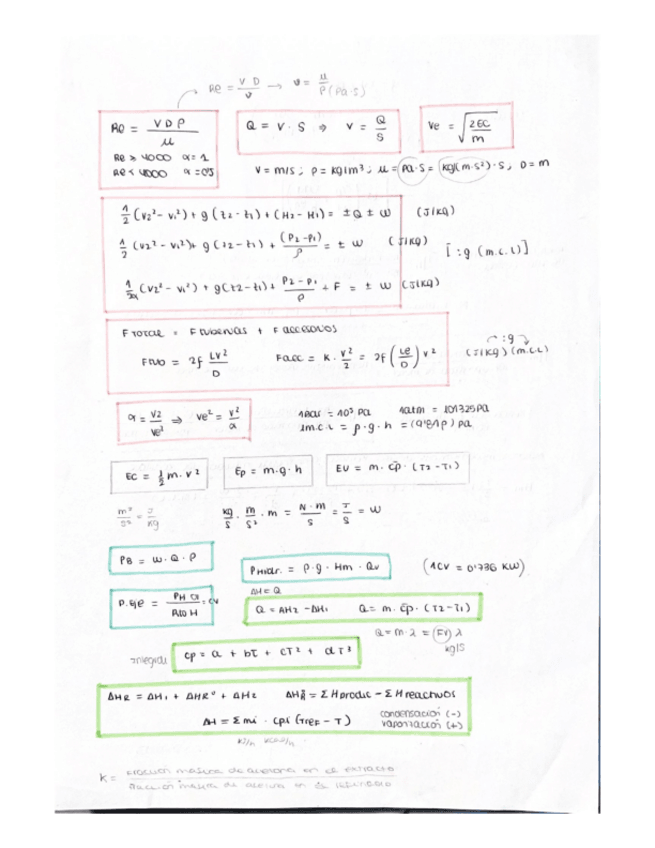 Re = V D / ν → ν = μ / ρ (Pa·s)
Re = V D ρ / μ
Re > 4000 α = 1
Re < 4000 α = 0'5
Q = V · S ⇒ V = Q / S
Ve = √(2EC / m)
V = m/s ; ρ = kg/m³ ; μ = Pa·s = kg/(m·s²)·s, D = m
1/2 (V2² - V1²) + g (z2 - z1) + (H2 - H1) = ± Q ± W (J/kg)
1/2 (V2² - V1²) + g (z2 - z1) + (P2 - P1) / ρ = ± W (J/kg)
[ : g (m.c.l)]
1/2α (V2² - V1²) + g (z2 - z1) + P2 - P1 / ρ + F = ± W (J/kg)
F TOTAL = F tuberías + F accesorios
F tub = 2f LV² / D Facc = K · V² / 2 = 2f (Le / D) V²
: g
(J/kg) (m.c.l)
α = V² / Ve² ⇒ Ve² = V² / α
1Bar = 10⁵ Pa 1atm = 101325 Pa
1m.c.l = ρ · g · h = (9'81ρ) Pa
EC = 1/2 m · V²
Ep = m · g · h
EU = m · cp · (T2 - T1)
m² / s² = J / kg
kg / s · m / s² · m = N · m / s = J / s = W
PB = W · Q · ρ
PHidr. = ρ · g · Hm · Qv
(1CV = 0'736 KW)
ΔH = Q
Q = ΔH2 - ΔH1 Q = m · cp · (T2 - T1)
Q = m · λ = (EV) λ
kg/s
cp = a + bT + cT² + dT³
ΔHR = ΔH1 + ΔHR° + ΔH2 ΔH°R = Σ H produc - Σ H reactivos
ΔH = Σ mi · cpi (TREF - T)
condensación (-)
vaporización (+)
kJ/h kcal/h
K = fracción másica de acetona en el extracto
fracción másica de acetona en el refinado